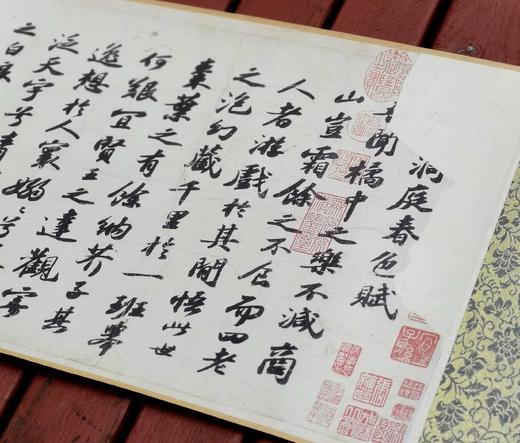 洞庭春色賦
吾聞橘中之樂不減商
山豈霜餘之不食而四老
人者游戲於其間悟此世
之泡幻藏千里於一班舉
棗葉之有餘納芥子其
何艱宜賢王之達觀寄
逸想於人寰嫋〻兮
泛天宇兮清
之白浪